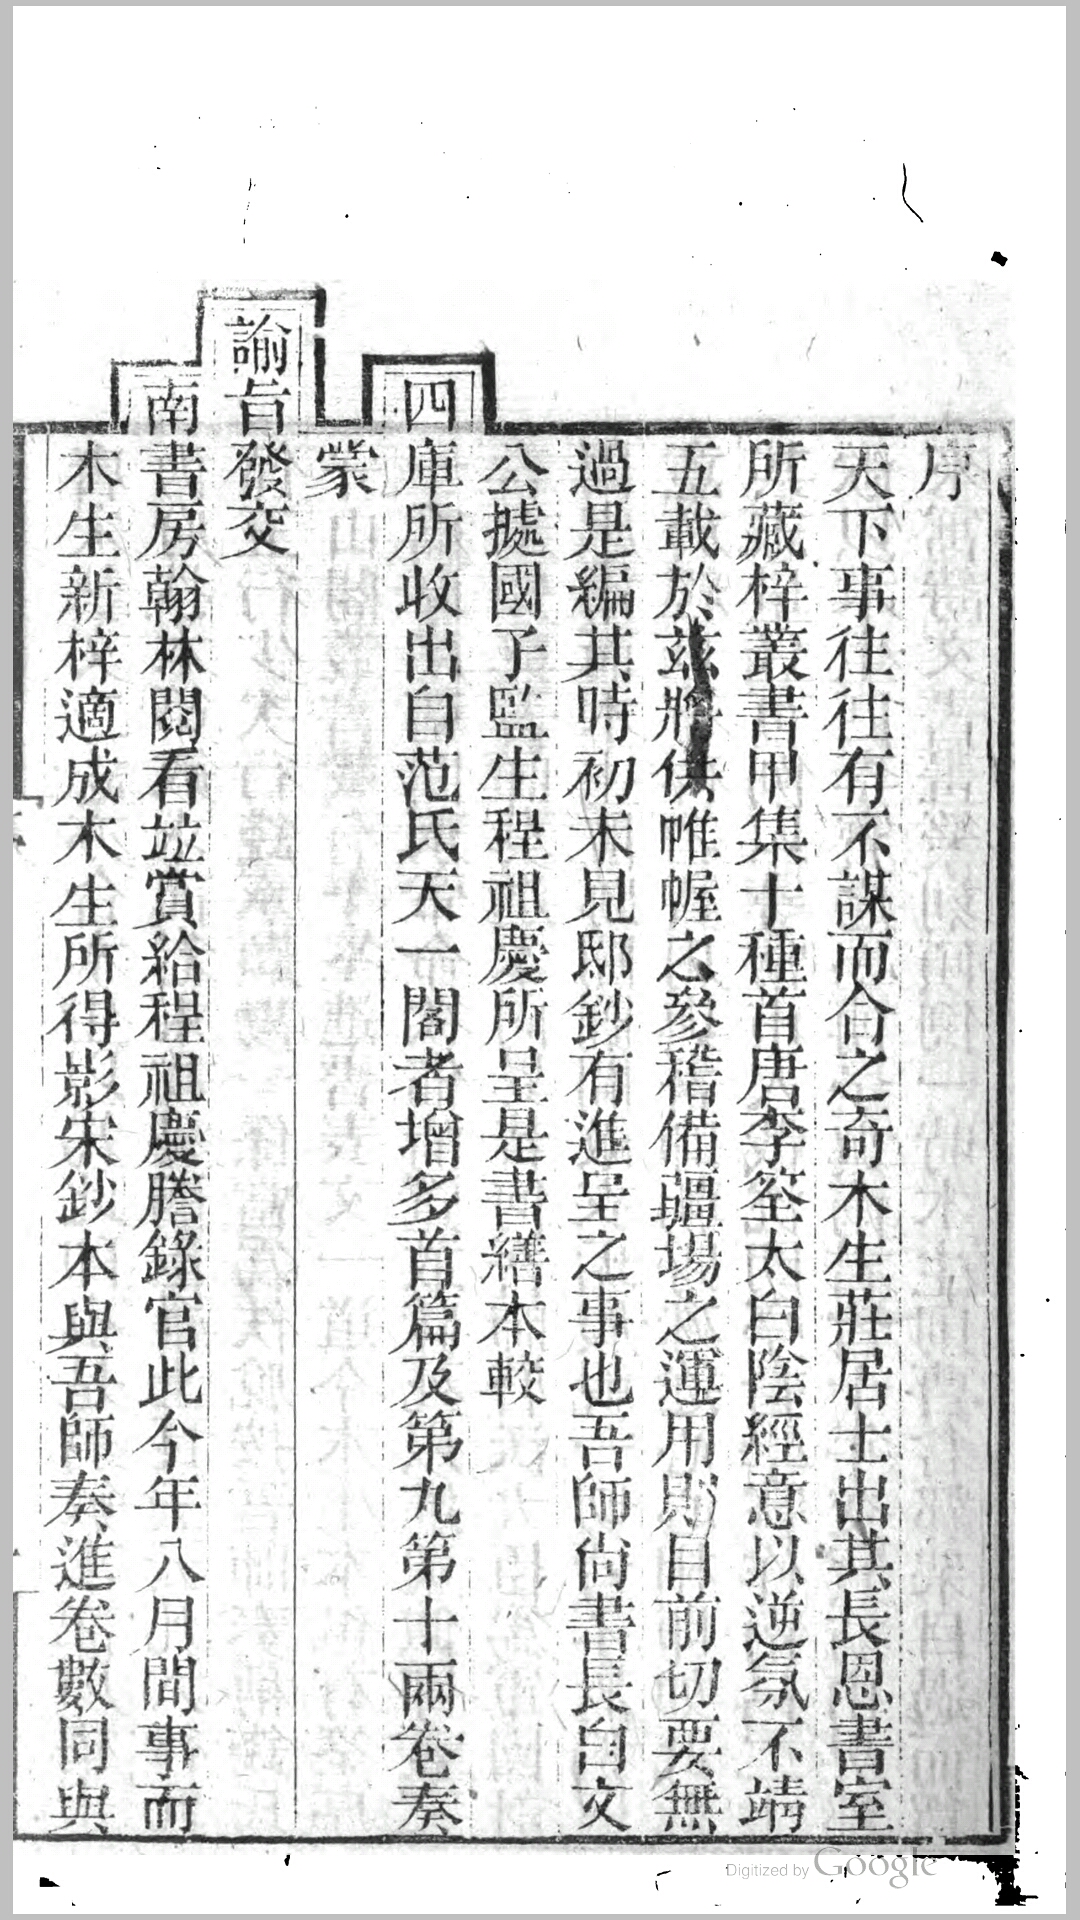 序
天下事往往有不謀而合之奇木生莊居士出其長恩書室
所藏梓叢書甲集十種首唐李筌太白陰經意以逆氛不靖
五載於茲將供帷幄之參稽備疆場之運用則目前切要無
過是編其時初未見邸鈔有進呈之事也吾師尚書長白文
公據國子監生程祖慶所呈是書繕本較
四庫所收出自范氏天一閣者增多首篇及第九第十兩卷奏
蒙
諭旨發交
南書房翰林閱看竝賞給程祖慶謄錄官此今年八月間事而
木生新梓適成木生所得影宋鈔本與吾師奏進卷數同與
Digitized by Google